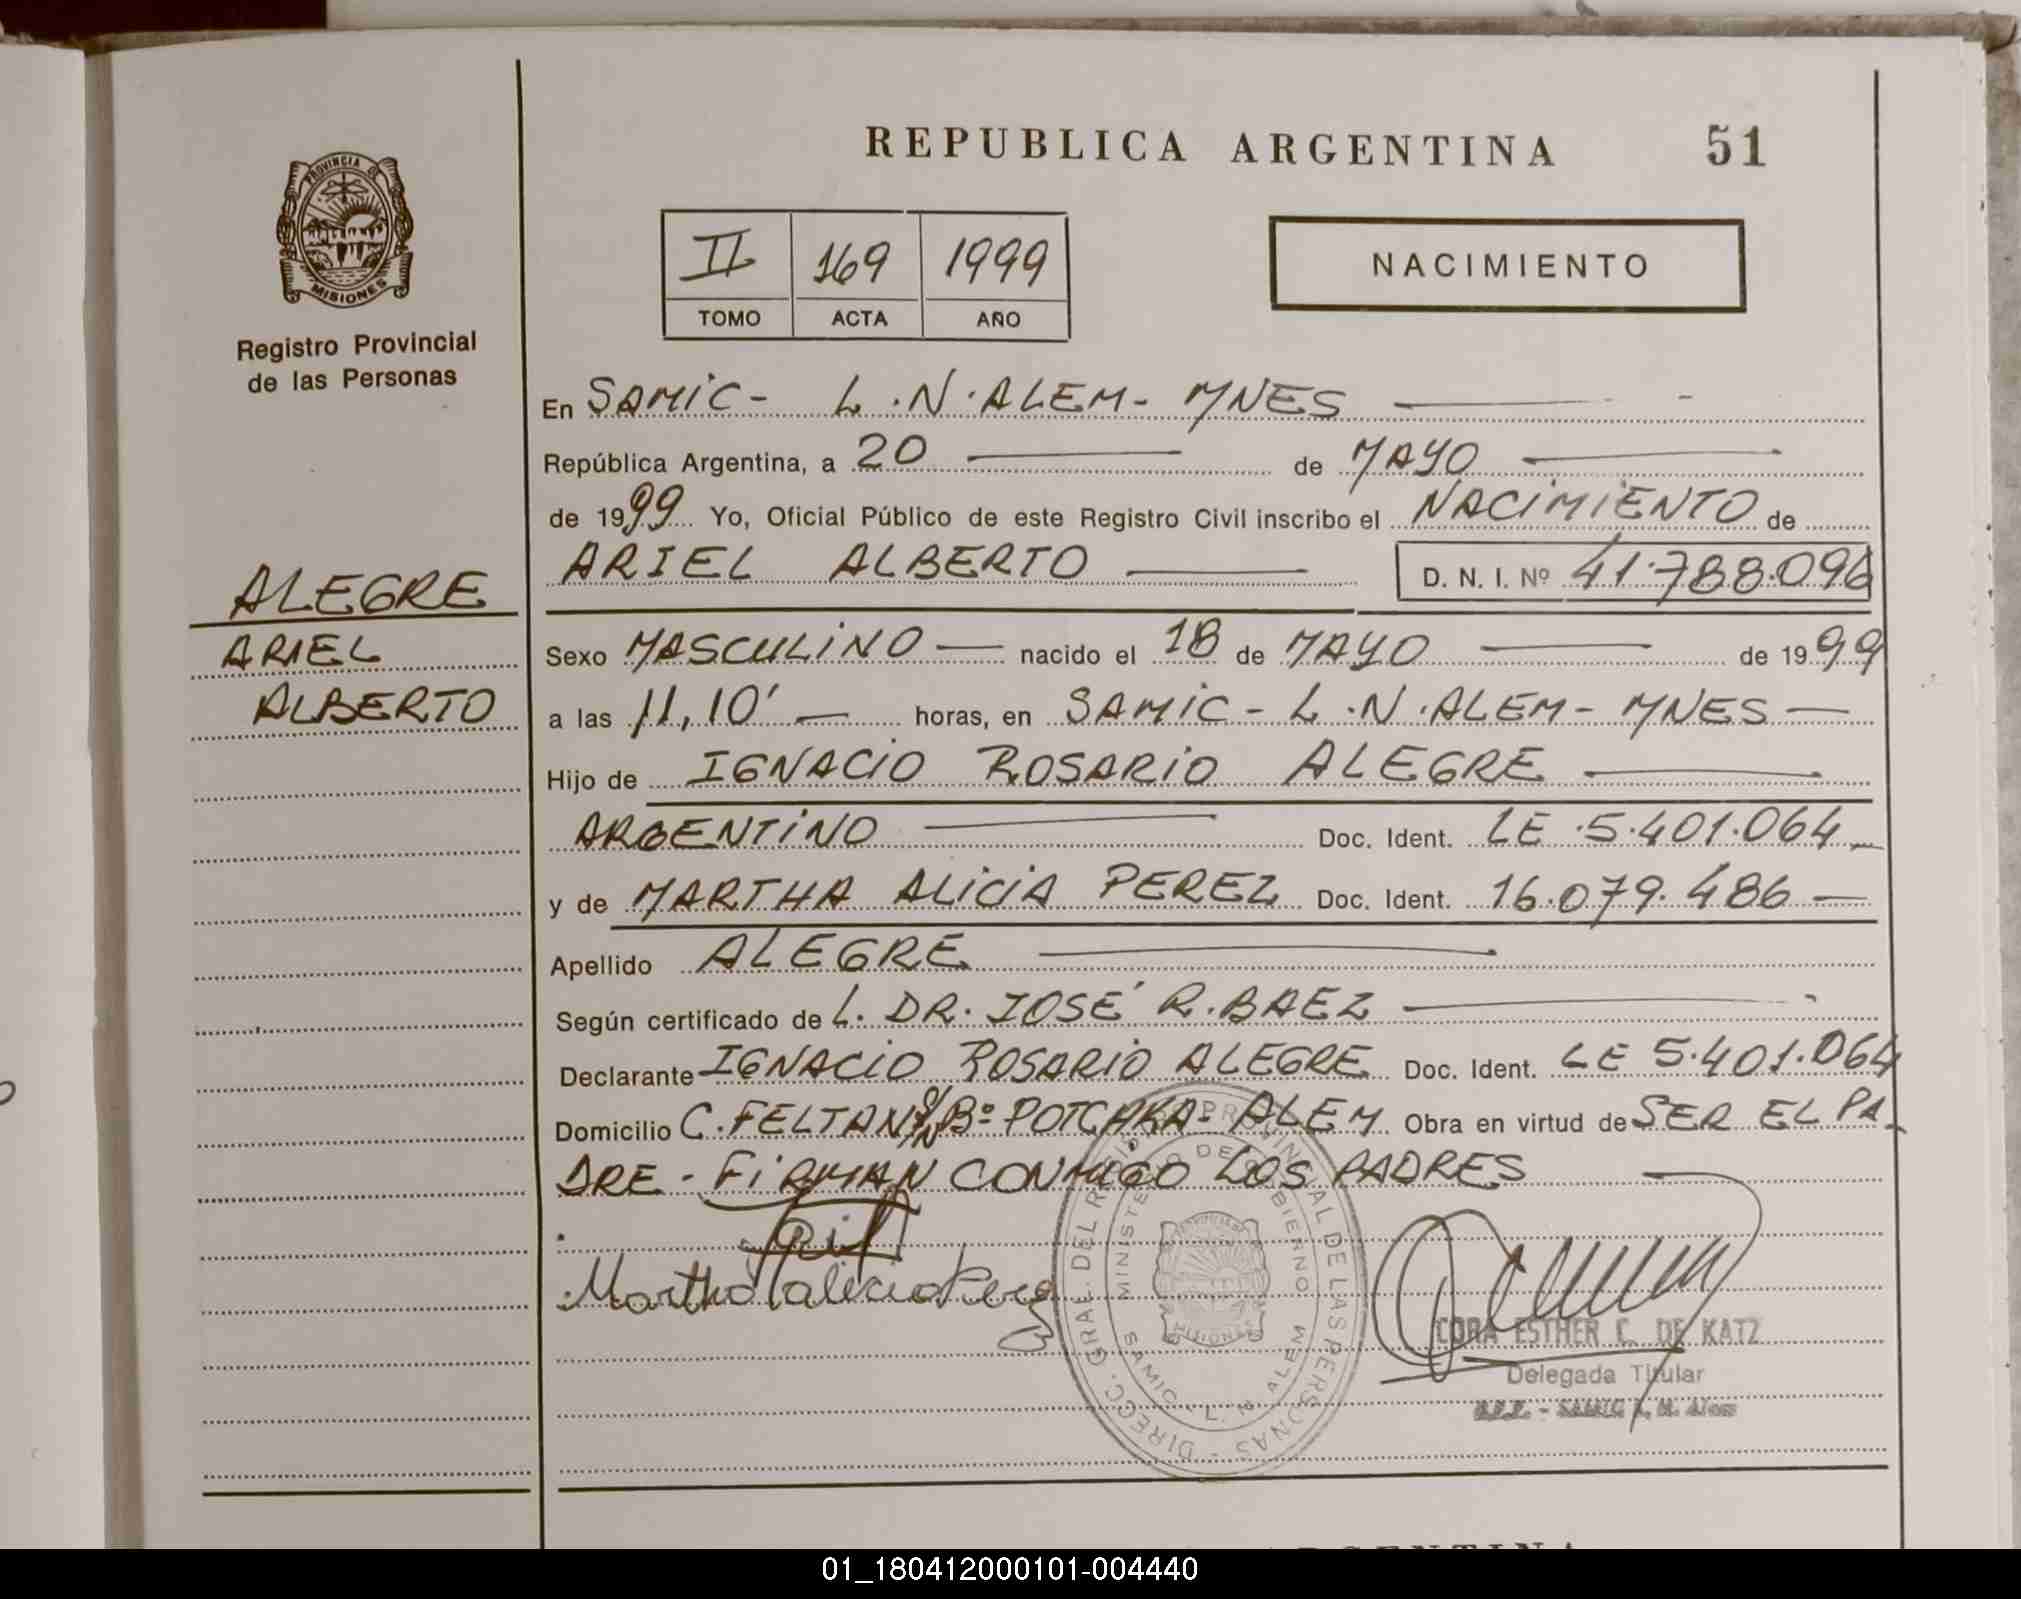 REPUBLICA ARGENTINA 51
PROVINCIA DE
MISIONES
Registro Provincial
de las Personas
II 169 1999
TOMO ACTA AÑO
NACIMIENTO
En SAMIC - L.N. ALEM - MNES
República Argentina, a 20 de MAYO
de 1999 Yo, Oficial Público de este Registro Civil inscribo el NACIMIENTO de
ARIEL ALBERTO D. N. I. Nº 41.788.096
ALEGRE
ARIEL
ALBERTO
Sexo MASCULINO nacido el 18 de MAYO de 1999
a las 11,10' horas, en SAMIC - L.N. ALEM - MNES
Hijo de IGNACIO ROSARIO ALEGRE
ARGENTINO Doc. Ident. LE 5.401.064
y de MARTHA ALICIA PEREZ Doc. Ident. 16.079.486
Apellido ALEGRE
Según certificado de L. DR. JOSÉ R. BAEZ
Declarante IGNACIO ROSARIO ALEGRE Doc. Ident. LE 5.401.064
Domicilio C. FELTAN S/N Bº POTCHKA - ALEM Obra en virtud de SER EL PA-
DRE - FIRMAN CONMIGO LOS PADRES
Martha alicia Perez
DIRECC. GRAL. DEL REGISTRO PROVINCIAL DE LAS PERSONAS
MINISTERIO DE GOBIERNO
SAMIC - L. N. ALEM
MISIONES
CORA ESTHER C. DE KATZ
Delegada Titular
ARGENTINA
01_180412000101-004440